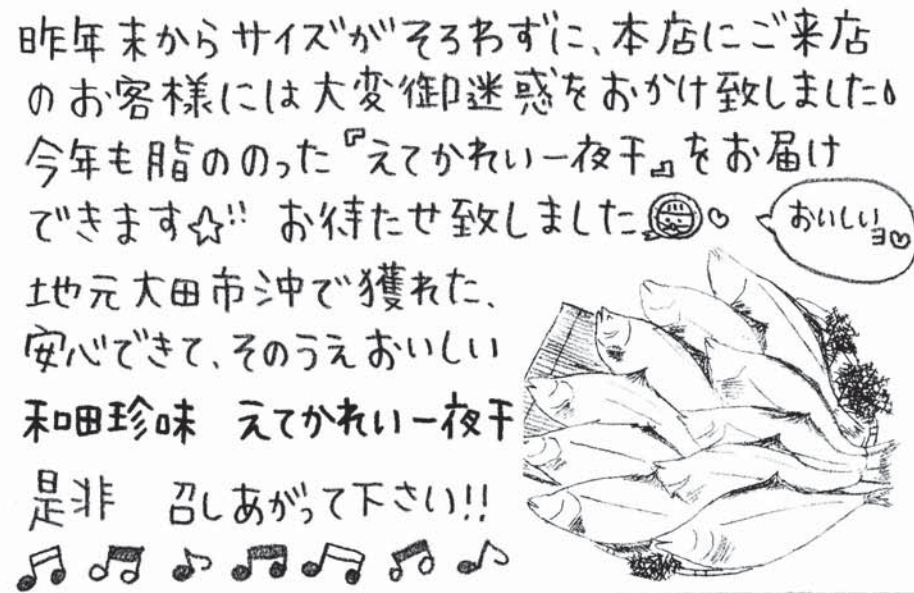 昨年末からサイズがそろわずに、本店にご来店
のお客様には大変御迷惑をおかけ致しました。
今年も脂ののった『えてかれい一夜干』をお届け
できます☆!! お待たせ致しました♡
おいしいヨ♡
地元大田市沖で獲れた、
安心できて、そのうえおいしい
和田珍味 えてかれい一夜干
是非 召しあがって下さい!!